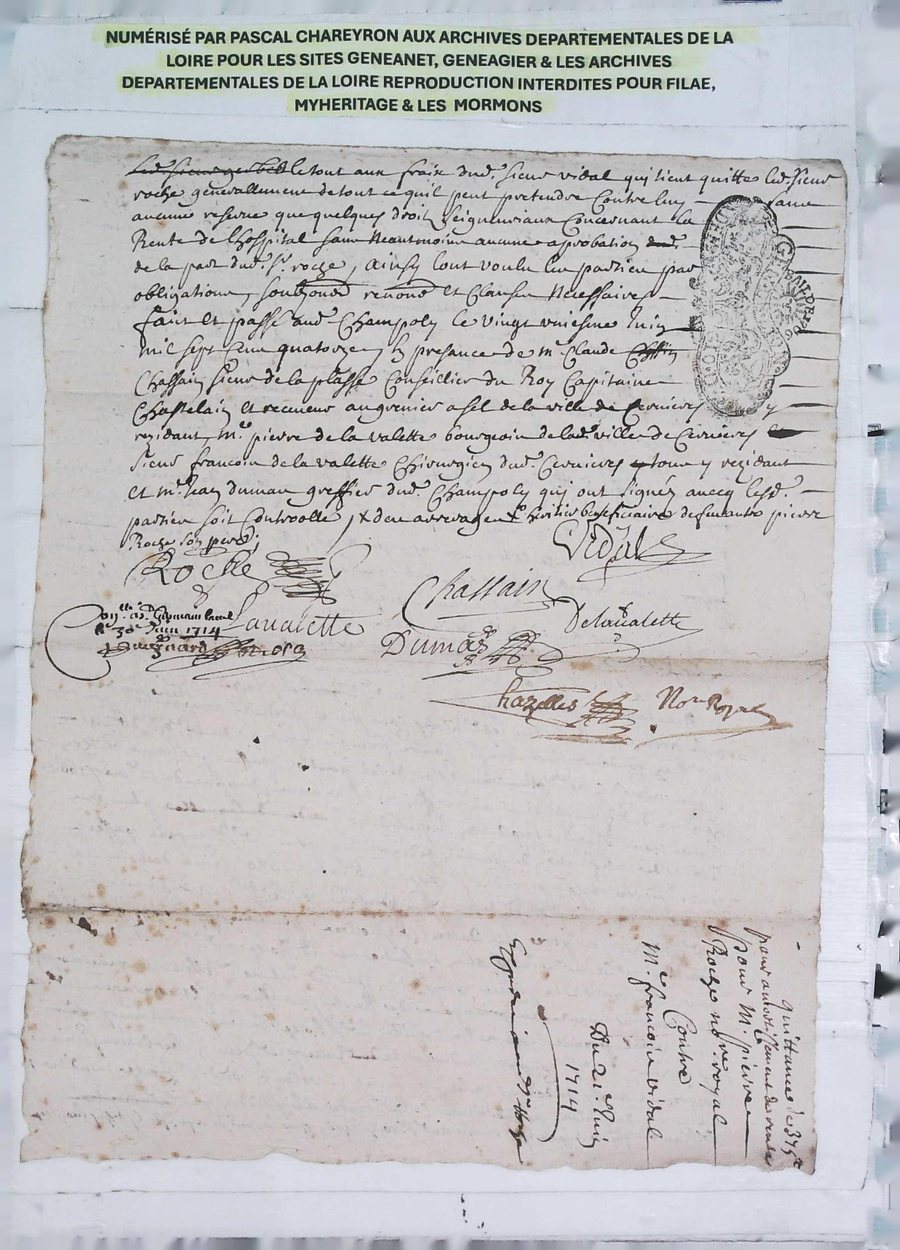 NUMÉRISÉ PAR PASCAL CHAREYRON AUX ARCHIVES DEPARTEMENTALES DE LA
LOIRE POUR LES SITES GENEANET, GENEAGIER & LES ARCHIVES
DEPARTEMENTALES DE LA LOIRE REPRODUCTION INTERDITES POUR FILAE,
MYHERITAGE & LES MORMONS
le tout aux fraix dud. sieur vidal qui tient quitte led. sieur
roche generallement de tout ce quil peut pretendre contre luy sans
aucune reserve que quelques droit seigneuriaux concernant la
Rente de lhospital sans neantmoins aucune aprobation
de la part dud. Sr. roche, ainsy lont voulu les parties par
obligations, renons et clauses necessaires
fait et passé aud. Champoly le vingt uniesme Juin
mil sept cens quatorze, en presance de mr. Claude
Chassain sieur de la plasse Conseillier du Roy Capitaine
Chastelain et receveur au grenier a sel de la ville de Cervieres y
rezidant, Mr. pierre de la valette bourgeois de lad. ville de Cervieres
sieur francois de la valette Chirurgien dud. Cervieres tous y rezidant
et Mr. Jean dumas greffier dud. Champoly qui ont signés avecq lesd.
parties soit controolle, heritier beneficiaire de feu autre pierre
Roche son pere,
Roche
Vidal
Chassain
Lavalette
Delavalette
Dumas
le 30e Juin 1714
Chazelles Nore Royal
quittance de 375
pour amortissement de rente
pour Mr. pierre
Roche nore. royal
Contre
Mre francois vidal
Du 21e Juin
1714